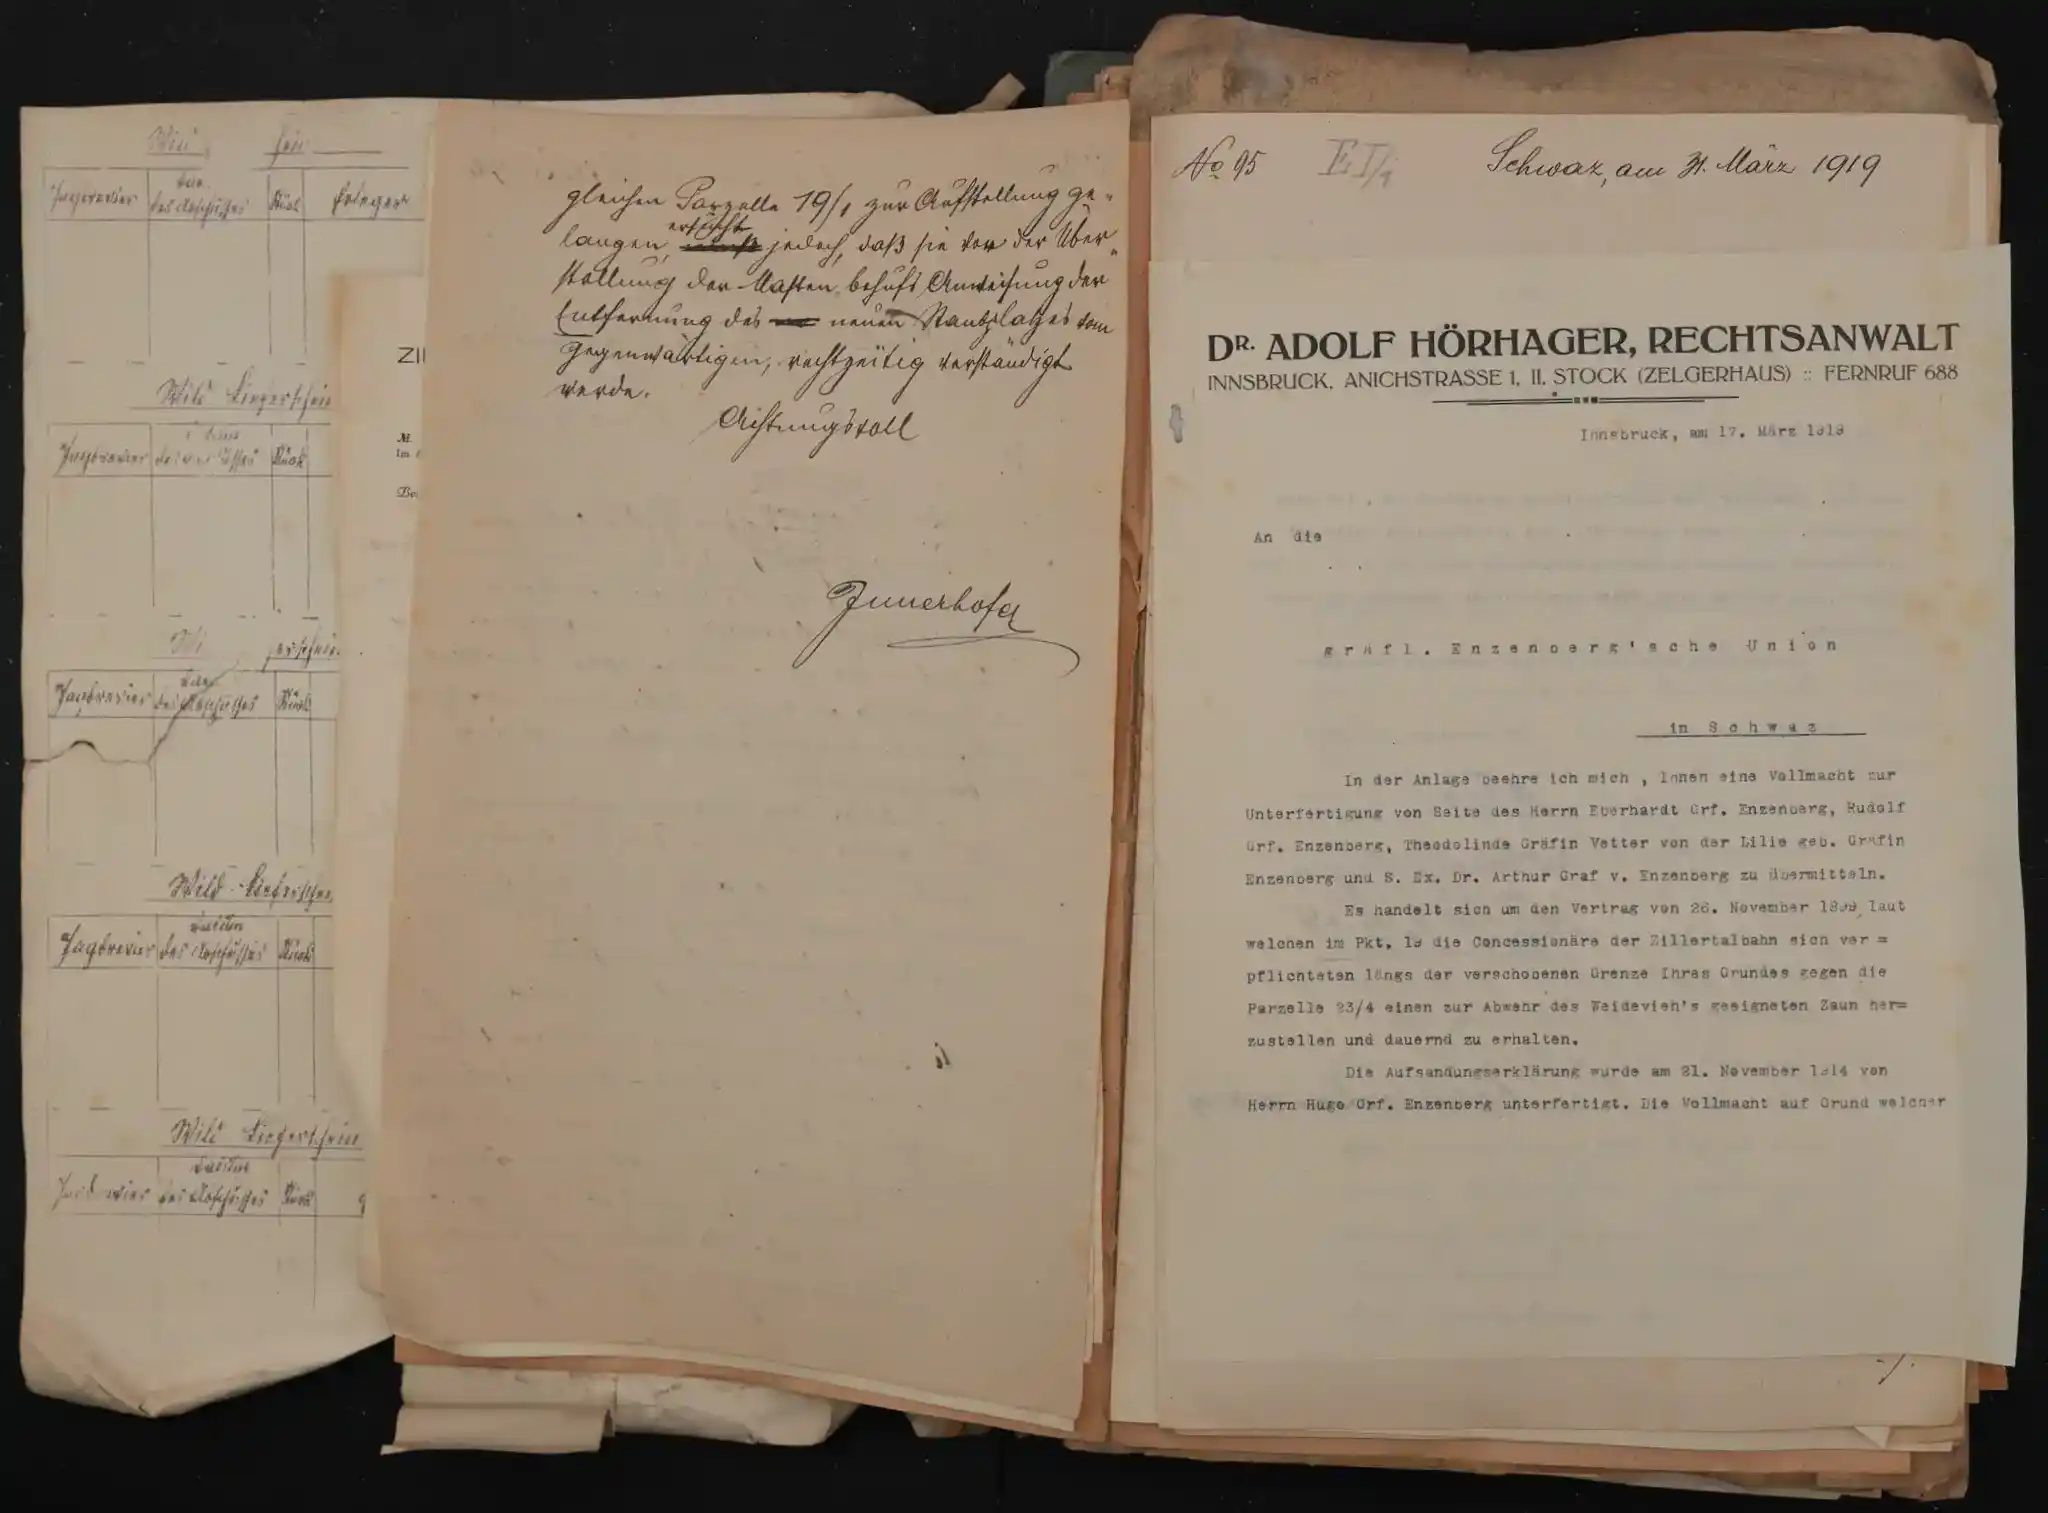 Wild
Jagdrevier
des Abschusses
Stück
Erleger
Wild Lieferschein
Jagdrevier
des Abschusses
Stück
Jagdrevier
des Abschusses
Stück
Wild-Lieferschein
Jagdrevier
Datum
des Abschusses
Stück
Wild Lieferschein
Datum
des Abschusses
Stück
ZIL
gleichen Parzelle 19/1 zur Aufstellung ge-
langen, ersucht jedoch, daß sie vor der Über-
stellung der Masten behufs Anweisung der
Entfernung des neuen Standplatzes vom
Gegenwärtigen, rechtzeitig verständigt
werde.
Achtungsvoll
Innerhofer
No 95 E I/1 Schwaz, am 31. März 1919
DR. ADOLF HÖRHAGER, RECHTSANWALT
INNSBRUCK, ANICHSTRASSE 1, II. STOCK (ZELGERHAUS) :: FERNRUF 688
Innsbruck, am 17. März 1919
An die
gräfl. Enzenberg'sche Union
in Schwaz
In der Anlage beehre ich mich , Ihnen eine Vollmacht zur
Unterfertigung von Seite des Herrn Eberhardt Grf. Enzenberg, Rudolf
Grf. Enzenberg, Theodolinde Gräfin Vetter von der Lilie geb. Gräfin
Enzenberg und S. Ex. Dr. Arthur Graf v. Enzenberg zu übermitteln.
Es handelt sich um den Vertrag von 26. November 1899, laut
welchen im Pkt. 19 die Concessionäre der Zillertalbahn sich ver =
pflichteten längs der verschobenen Grenze Ihres Grundes gegen die
Parzelle 23/4 einen zur Abwehr des Weidevieh's geeigneten Zaun her=
zustellen und dauernd zu erhalten.
Die Aufsandungserklärung wurde am 21. November 1914 von
Herrn Hugo Grf. Enzenberg unterfertigt. Die Vollmacht auf Grund welcher